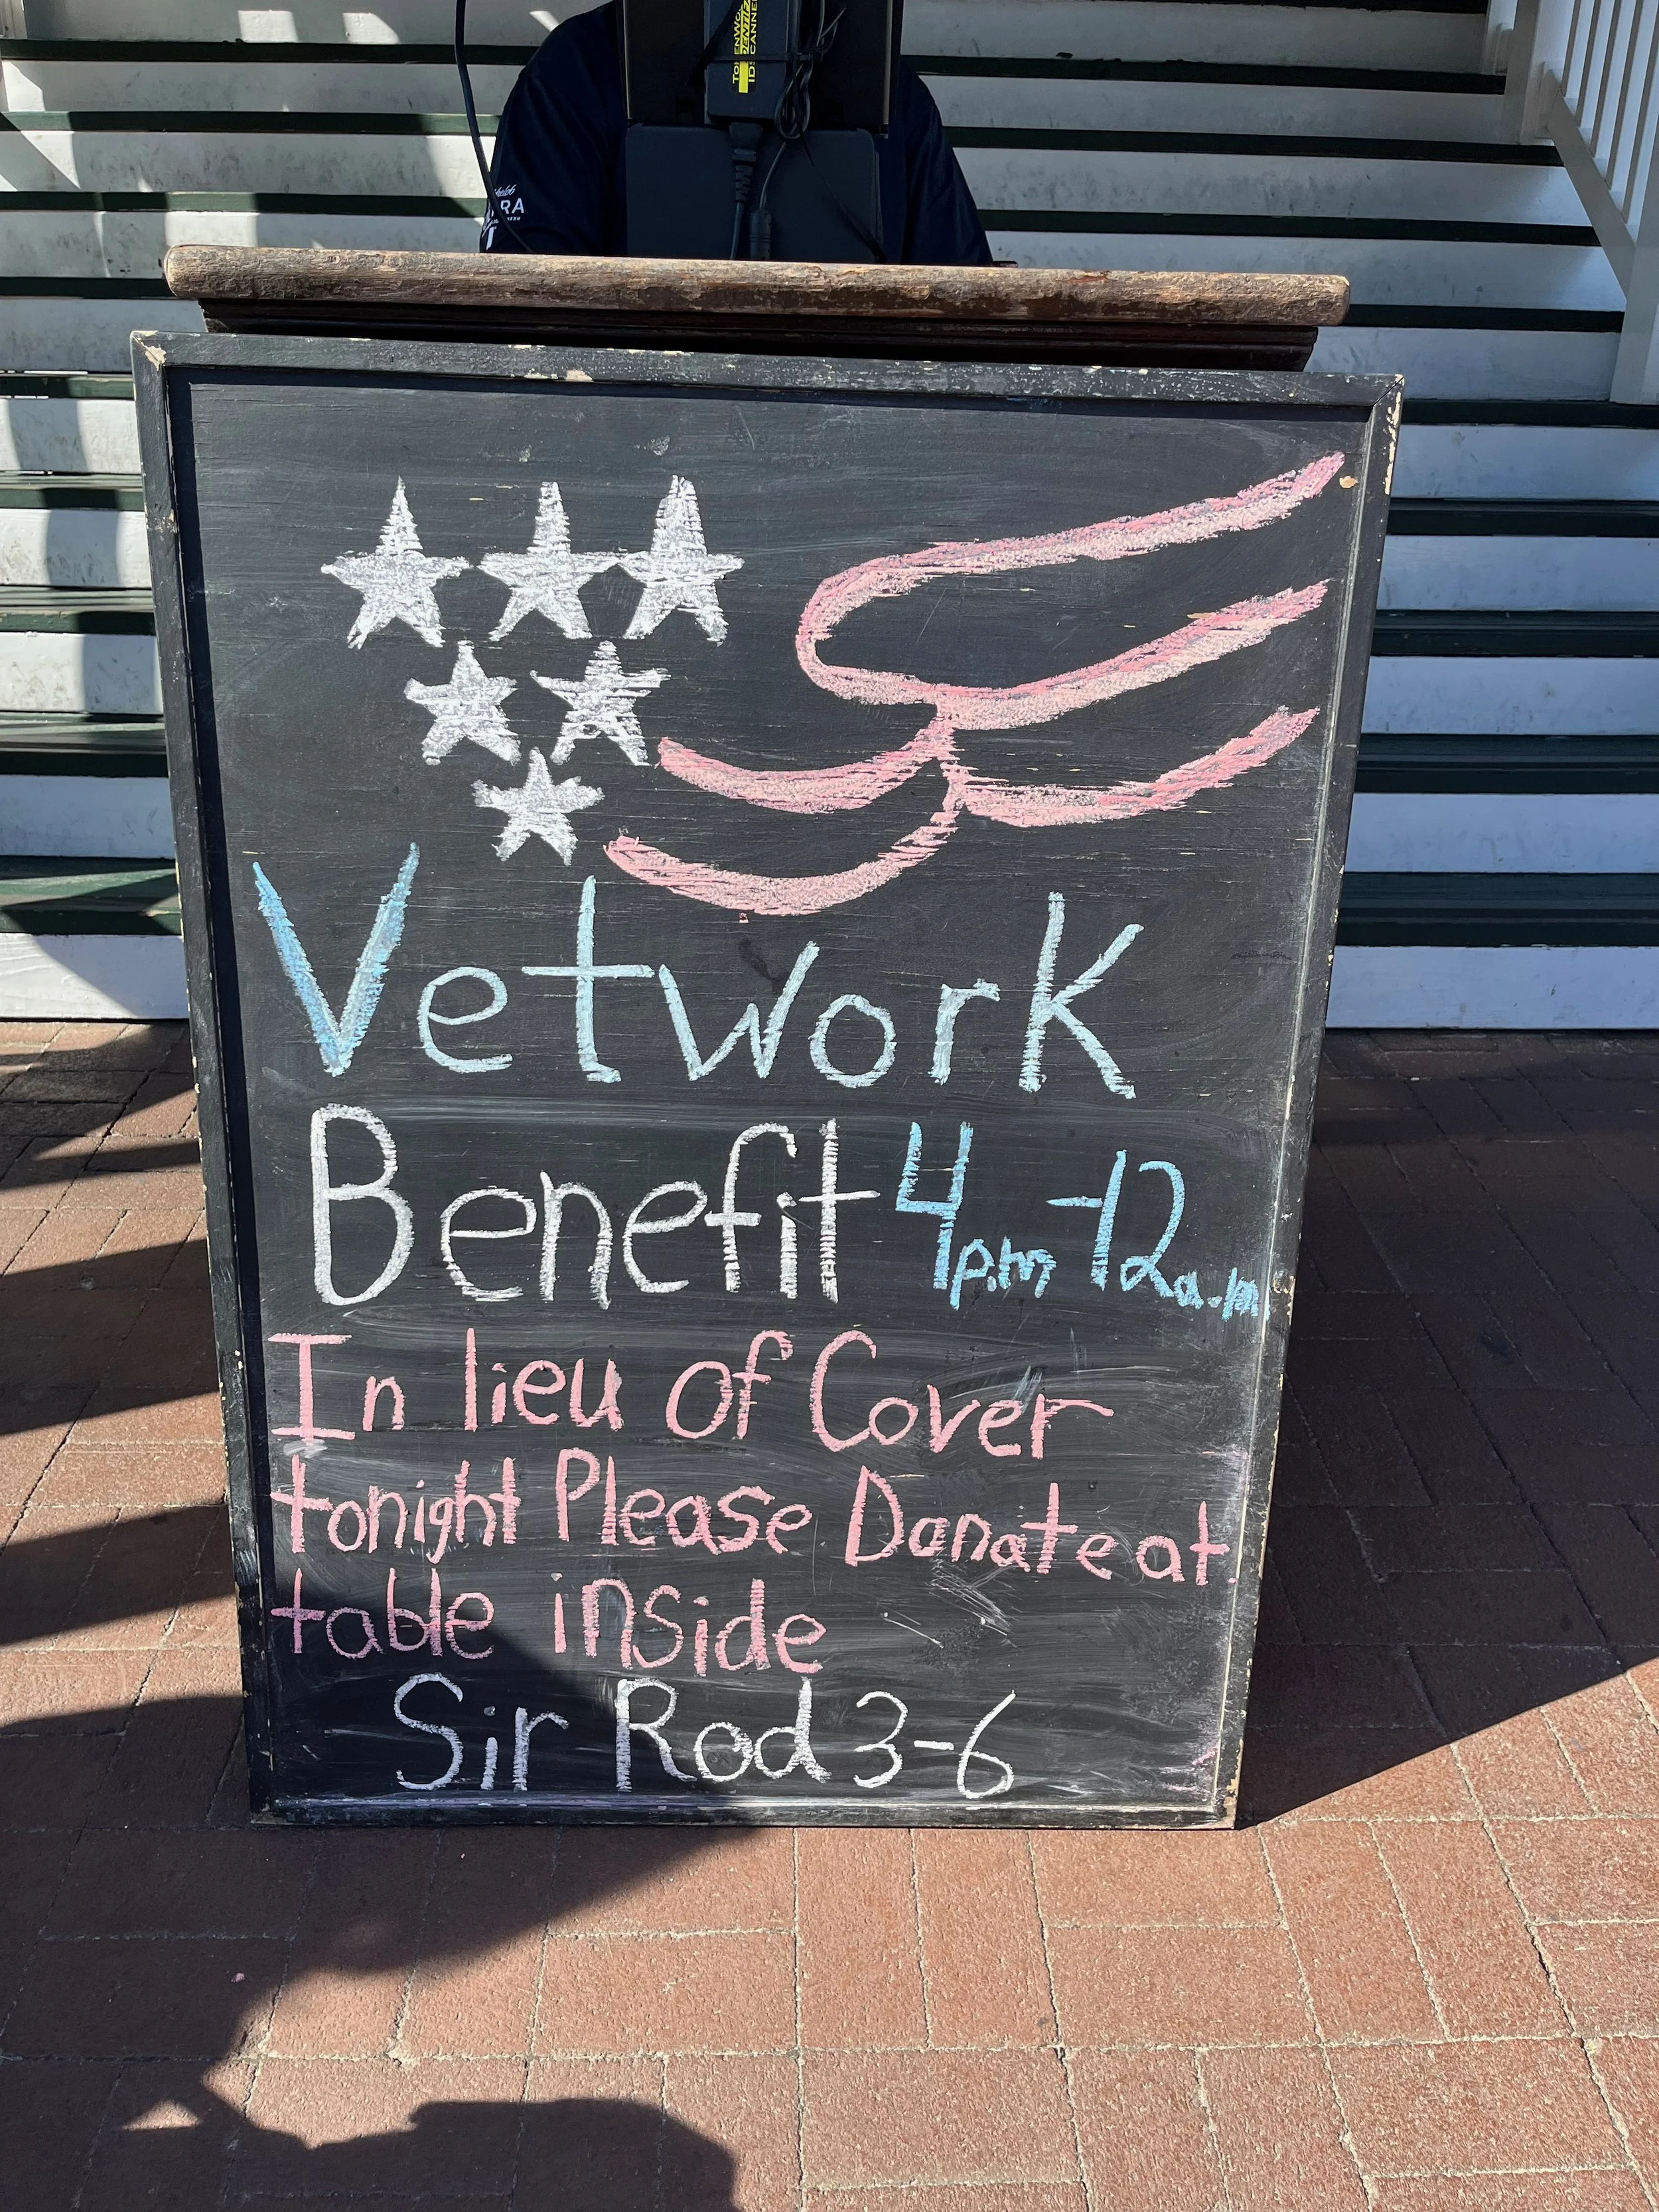 Vetwork
Benefit 4p.m-12a.m.
In lieu of Cover
tonight Please Donate at
table inside
Sir Rod 3-6